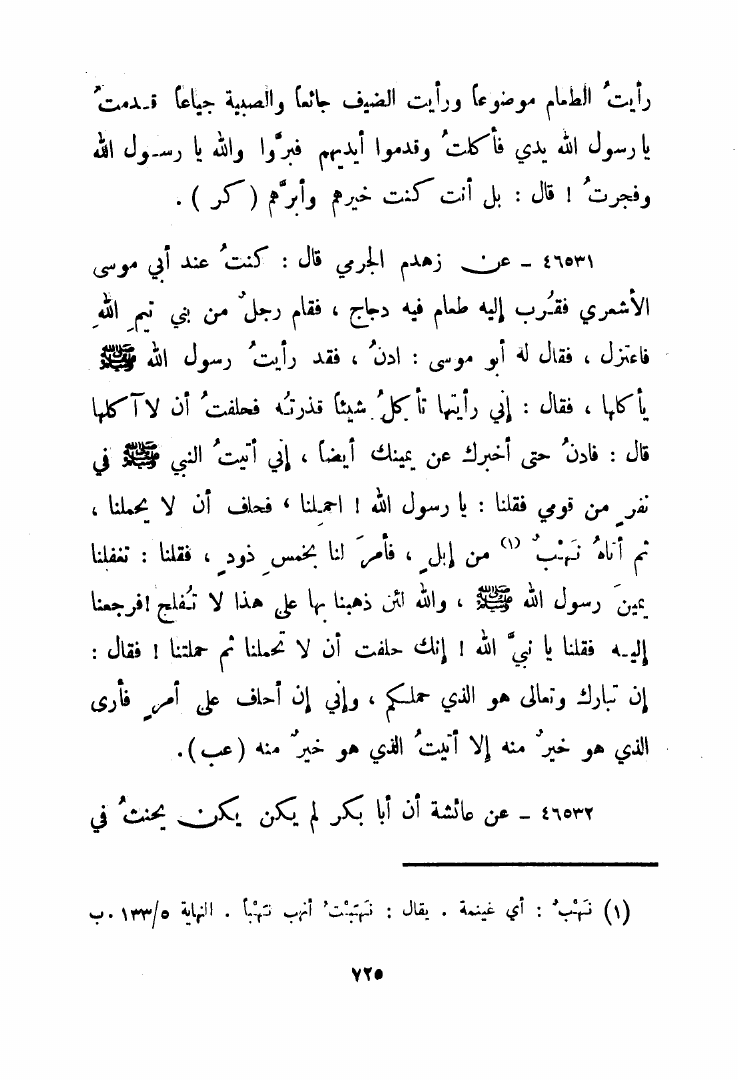 رأيتُ الطعام موضوعاً ورأيت الضيف جائعاً والصبية جياعاً قـدمتُ
يا رسول الله يدي فأكلتُ وقدموا أيديهم فبرَّوا والله يا رسـول الله
وفجرتُ ! قال : بل أنت كنت خيرهم وأبرَّهم ( كر ) .
٤٦٥٣١ ـ عن زهدم الجرمي قال : كنتُ عند أبي موسى
الأشعري فقُرب إليه طعام فيه دجاج ، فقام رجلٌ من بني تيمِ اللهِ
فاعتزل ، فقال له أبو موسى : ادنُ ، فقد رأيتُ رسول الله ﷺ
يأكلها ، فقال : إني رأيتها تأكلُ شيئاً قذرتـُه فحلفتُ أن لا آكلها
قال : فادنُ حتى أخبرك عن يمينك أيضاً ، إني أتيتُ النبي ﷺ في
نفرٍ من قومي فقلنا : يا رسول الله ! احمِلنا ، فحلف أن لا يحملنا ،
ثم أتاهُ نَهْبٌ (١) من إبلٍ ، فأمرَ لنا بخمسِ ذودٍ ، فقلنا : تغفلنا
يمينَ رسول الله ﷺ ، والله لئن ذهبنا بها على هذا لا نُفلح ! فرجعنا
إليـه فقلنا يا نبيَّ الله ! إنك حلفت أن لا تحملنا ثم حملتنا ! فقال :
إن تبارك وتعالى هو الذي حملكم ، وإني إن أحلف على أمرٍ فأرى
الذي هو خيرٌ منه إلا أتيتُ الذي هو خيرٌ منه ( عب ) .
٤٦٥٣٢ ـ عن عائشة أن أبا بكر لم يكن يكن يحنثُ في
(١) نَهْبٌ : أي غنيمة . يقال : نَهَبْتُ أنهب نَهْباً . النهاية ١٣٣/٥ . ب
٧٢٥